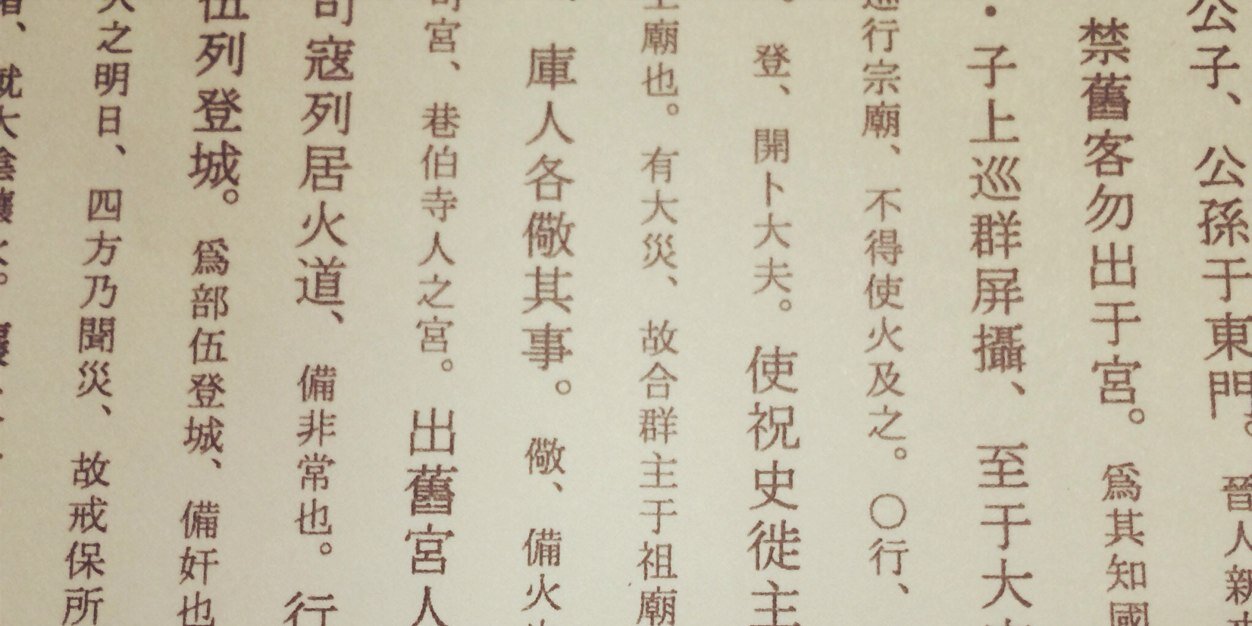 公子、公孫于東門。晉人新
禁舊客勿出于宮。爲其知國
子上巡群屏攝、至于大
巡行宗廟、不得使火及之。○行、
登、開卜大夫。使祝史徙主
主廟也。有大災、故合群主于祖廟
庫人各儆其事。儆、備火
司宮、巷伯寺人之宮。出舊宮人
司寇列居火道、備非常也。行
伍列登城。爲部伍登城、備奸也
火之明日、四方乃聞災、故戒保所
就大陰禳火。